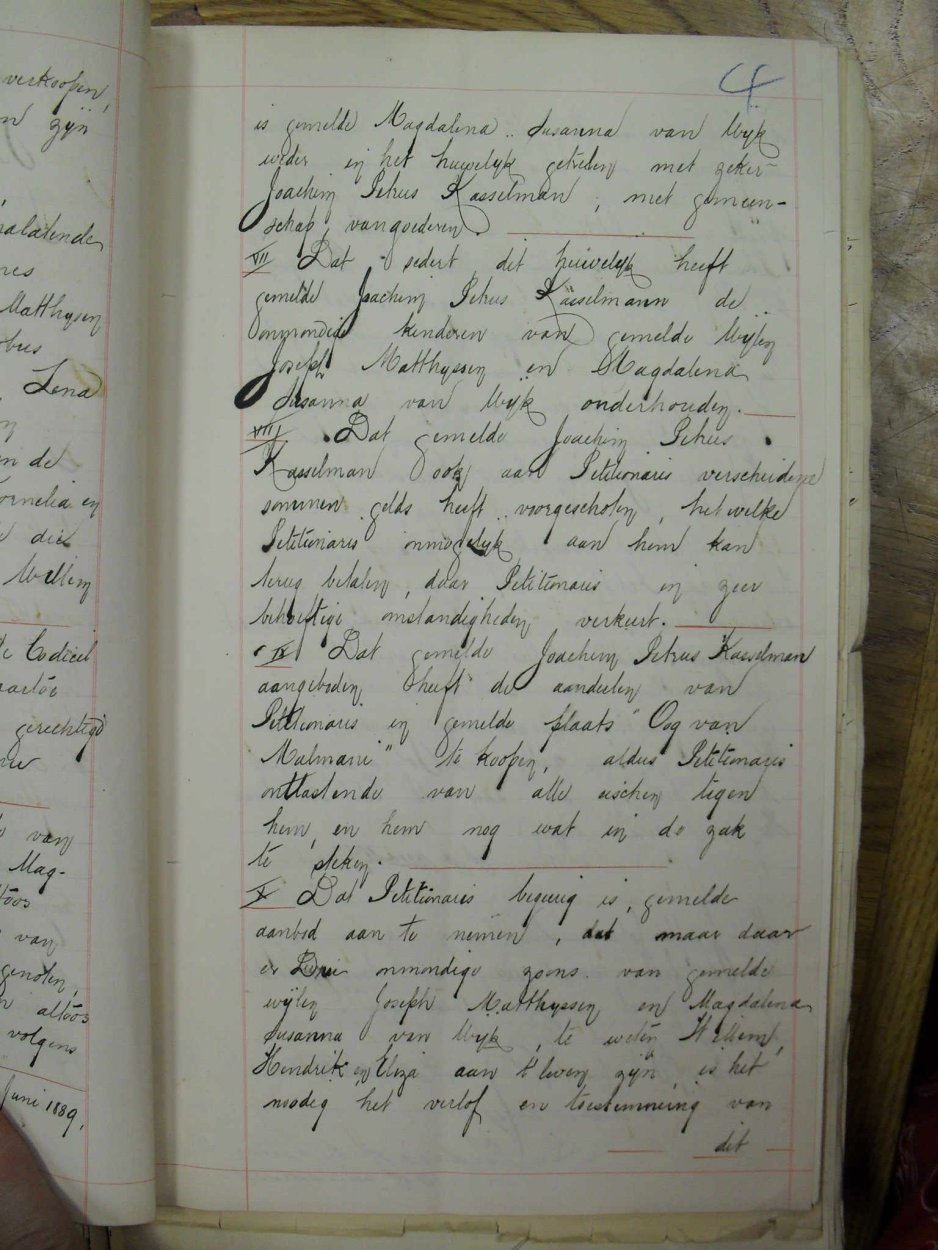 verkoopen,
n zijn
nalatende
res
Matthysen
obus
Lena
en de
Cornelia en
die
Willem
Codicil
gerechtigd
van
Mag-
van
genoten,
altoos
volgens
Juni 1889,
4
is gemelde Magdalena Susanna van Wijk
weder in het huwelijk getreden met zeker
Joachim Petrus Kasselman, met gemeen-
schap van goederen.
VII Dat sedert dit huwelijk heeft
gemelde Joachim Petrus Kasselmann de
onmondige kinderen van gemelde Wijlen
Joseph Matthyssen en Magdalena
Susanna van Wijk onderhouden.
VIII. Dat gemelde Joachim Petrus
Kasselman ook aan Petitionaris verscheidene
sommen gelds heeft voorgeschoten, het welke
Petitionaris onmogelyk aan hem kan
terug betalen, daar Petitionaris in zeer
behoeftige omstandigheden verkeert.
IX Dat gemelde Joachim Petrus Kasselman
aangeboden heeft de aandeelen van
Petitionaris in gemelde plaats "Oog van
Malmani" te koopen, aldus Petitionaris
ontlastende van alle eischen tegen
hem, en hem nog wat in de zak
te steken.
X Dat Petitionaris begeerig is, gemelde
aanbod aan te nemen, dat maar daar
er Drie onmondige zoons van gemelde
wijlen Joseph Matthyssen en Magdalena
Susanna van Wijk, te weten Willem,
Hendrik en Eliza aan t leven zijn, is het
noodig het verlof en toestemming van
dit